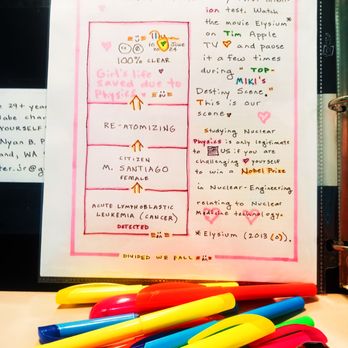 ion test. Watch
the movie Elysium
on Tim Apple
TV and pause
it a few times
during " TOP-
MIKI's
Destiny Scene."
This is our
scene
Studying Nuclear
Physics is only legitimate
to US if you are
challenging yourself
to win a Nobel Prize
in Nuclear-Engineering
relating to Nuclear
Medicine technology.
* Elysium (2013)
100% CLEAR
Girl's life
saved due to
Physics
RE-ATOMIZING
CITIZEN
M. SANTIAGO
FEMALE
ACUTE LYMPHOBLASTIC
LEUKEMIA (CANCER)
DETECTED
DIVIDED WE FALL
29+ year
labe chan
YOURSELF
Nyan B. P
and, WA
ter.jr@g